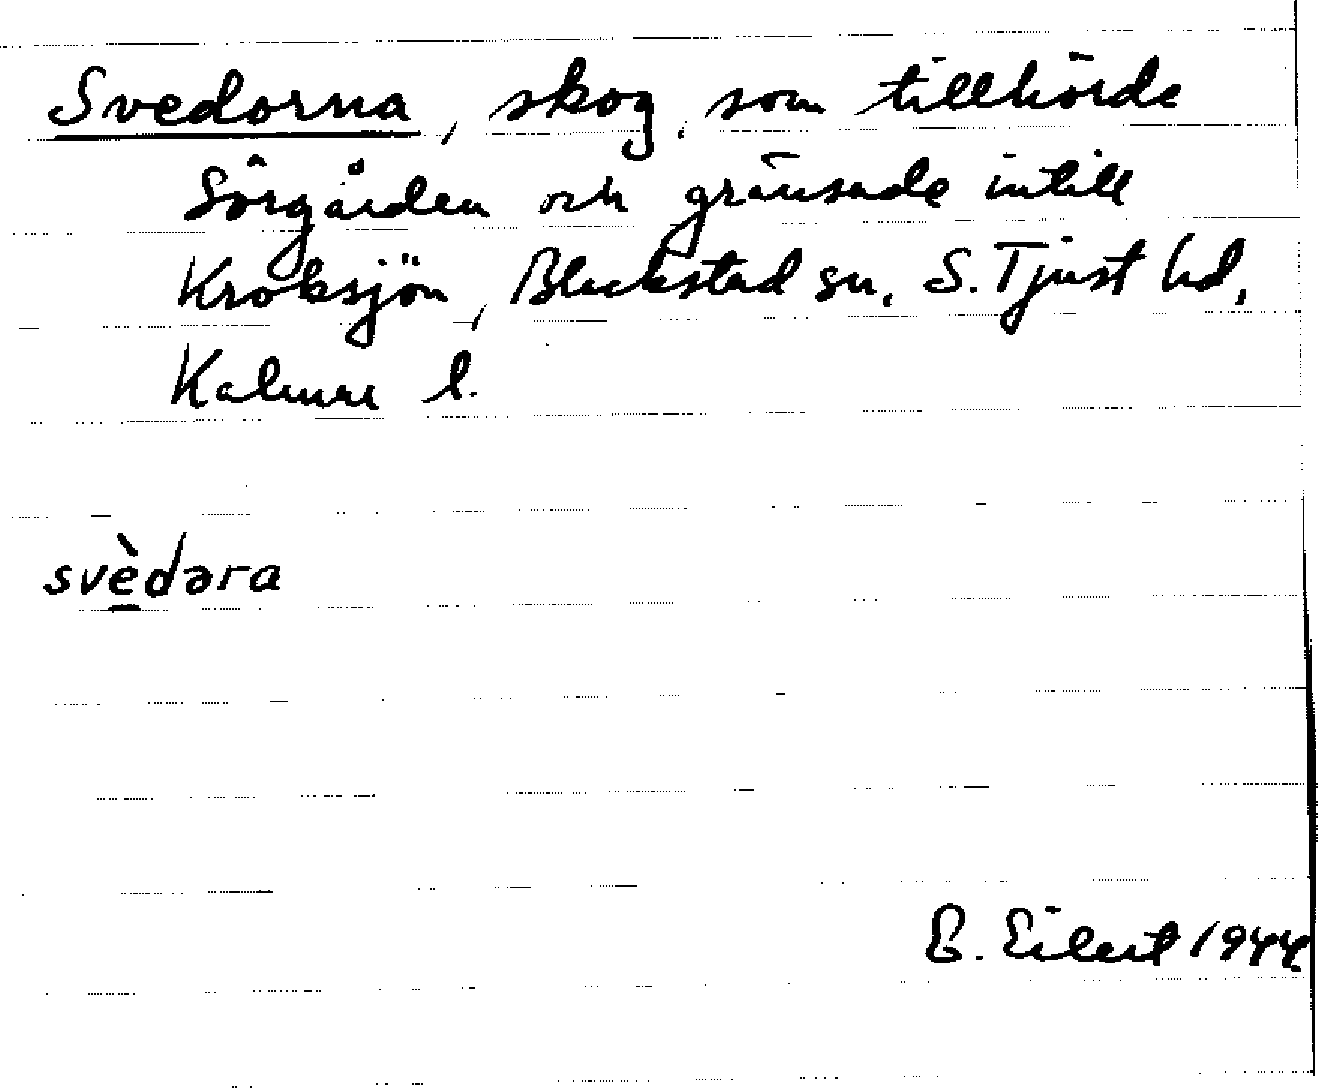 Svedorna, skog, som tillhörde
Sörgården och gränsade intill
Kroksjön, Blackstad sn, S. Tjust hd,
Kalmar l.
svèdəra
B. Eilert 1944